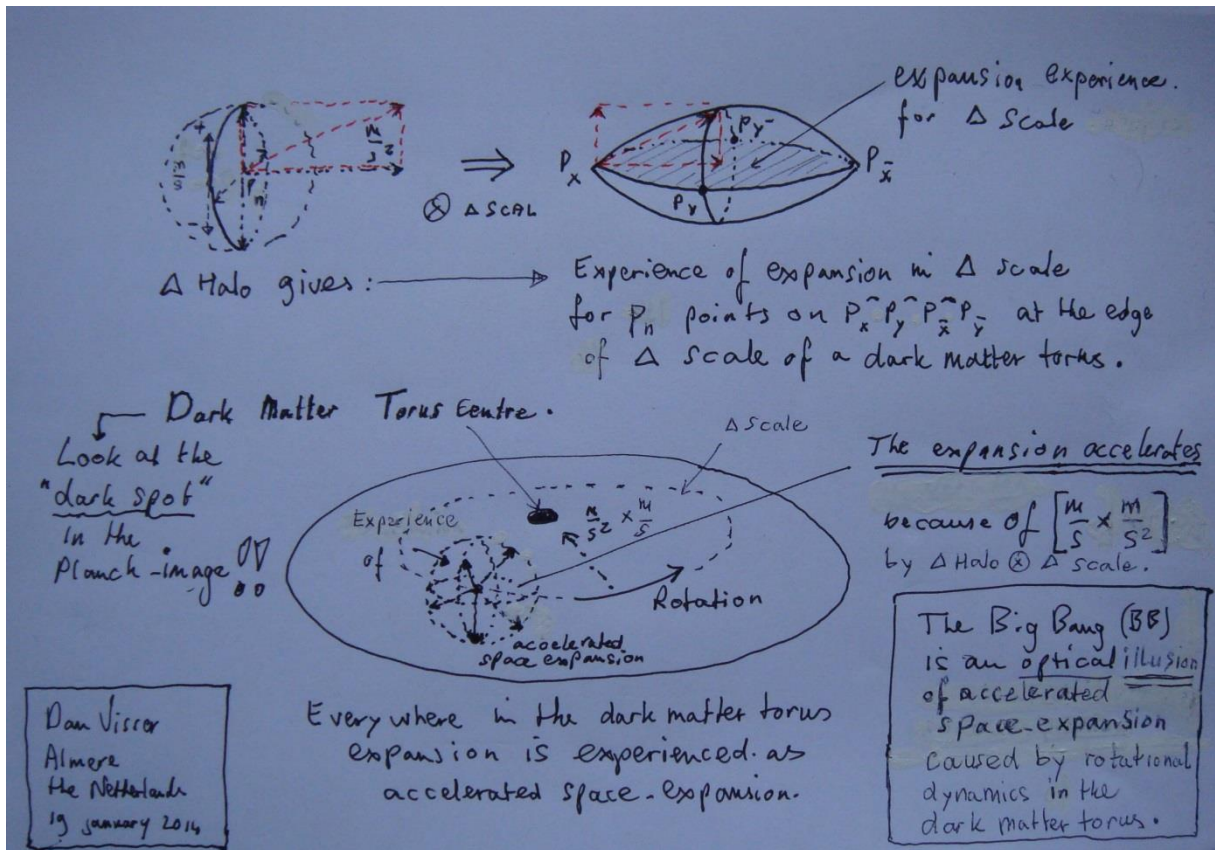 expansion experience.
for Δ Scale
m/s
m/s²
P
Px
Py
Pȳ
Px̄
⇒
⊗ Δ SCAL
Δ Halo gives:
Experience of expansion in Δ scale
for Pn points on Px⌢Py⌢Px̄⌢Pȳ at the edge
of Δ scale of a dark matter torus.
Dark Matter Torus Centre.
Look at the
"dark spot"
in the
Planck-image!!
Δ Scale
m/s² × m/s
Experience
of
accelerated
space expansion
Rotation
The expansion accelerates
because of [m/s × m/s²]
by Δ Halo ⊗ Δ scale.
The Big Bang (BB)
is an optical illusion
of accelerated
space-expansion
caused by rotational
dynamics in the
dark matter torus.
Every where in the dark matter torus
expansion is experienced as
accelerated space-expansion.
Dan Visser
Almere
the Netherlands
19 january 2014